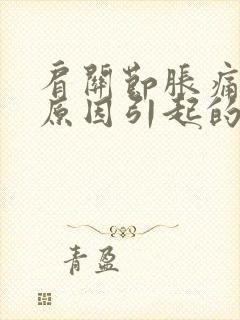 肩關節脹痛
原因引起的
青盈